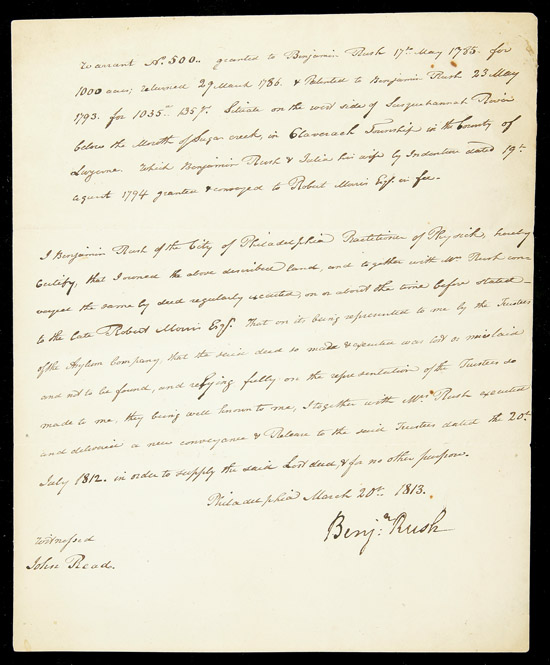 Warrant No. 500.. granted to Benjamin Rush 17th May 1785. for
1000 acres; returned 29 March 1786. & Patented to Benjamin Rush 23 May
1793. for 1035 as 135 ps. Situate on the west side of Susquehannah River
below the Mouth of Sugar creek, in Claverack Township in the County of
Luzerne. Which Benjamin Rush & Julia his wife by Indenture dated 19th
August 1794 granted & conveyed to Robert Morris Esqr. in fee.
I Benjamin Rush of the City of Philadelphia Practitioner of Physick, hereby
Certify, that I owned the above described land, and together with Mrs. Rush con-
veyed the same by deed regularly executed, on or about the time before stated
to the late Robert Morris Esqr. That on its being represented to me by the Trustees
of the Asylum Company that the said deed so made & executed was lost or mislaid
and not to be found, and relying fully on the representation of the Trustees so
made to me, they being well known to me, I together with Mrs. Rush executed
and delivered a new conveyance & Release to the said Trustees dated the 20th
July 1812. in order to supply the said Lost deed, & for no other purpose.
Philadelphia March 20th. 1813.
Benjn. Rush
Witnessed
John Read.